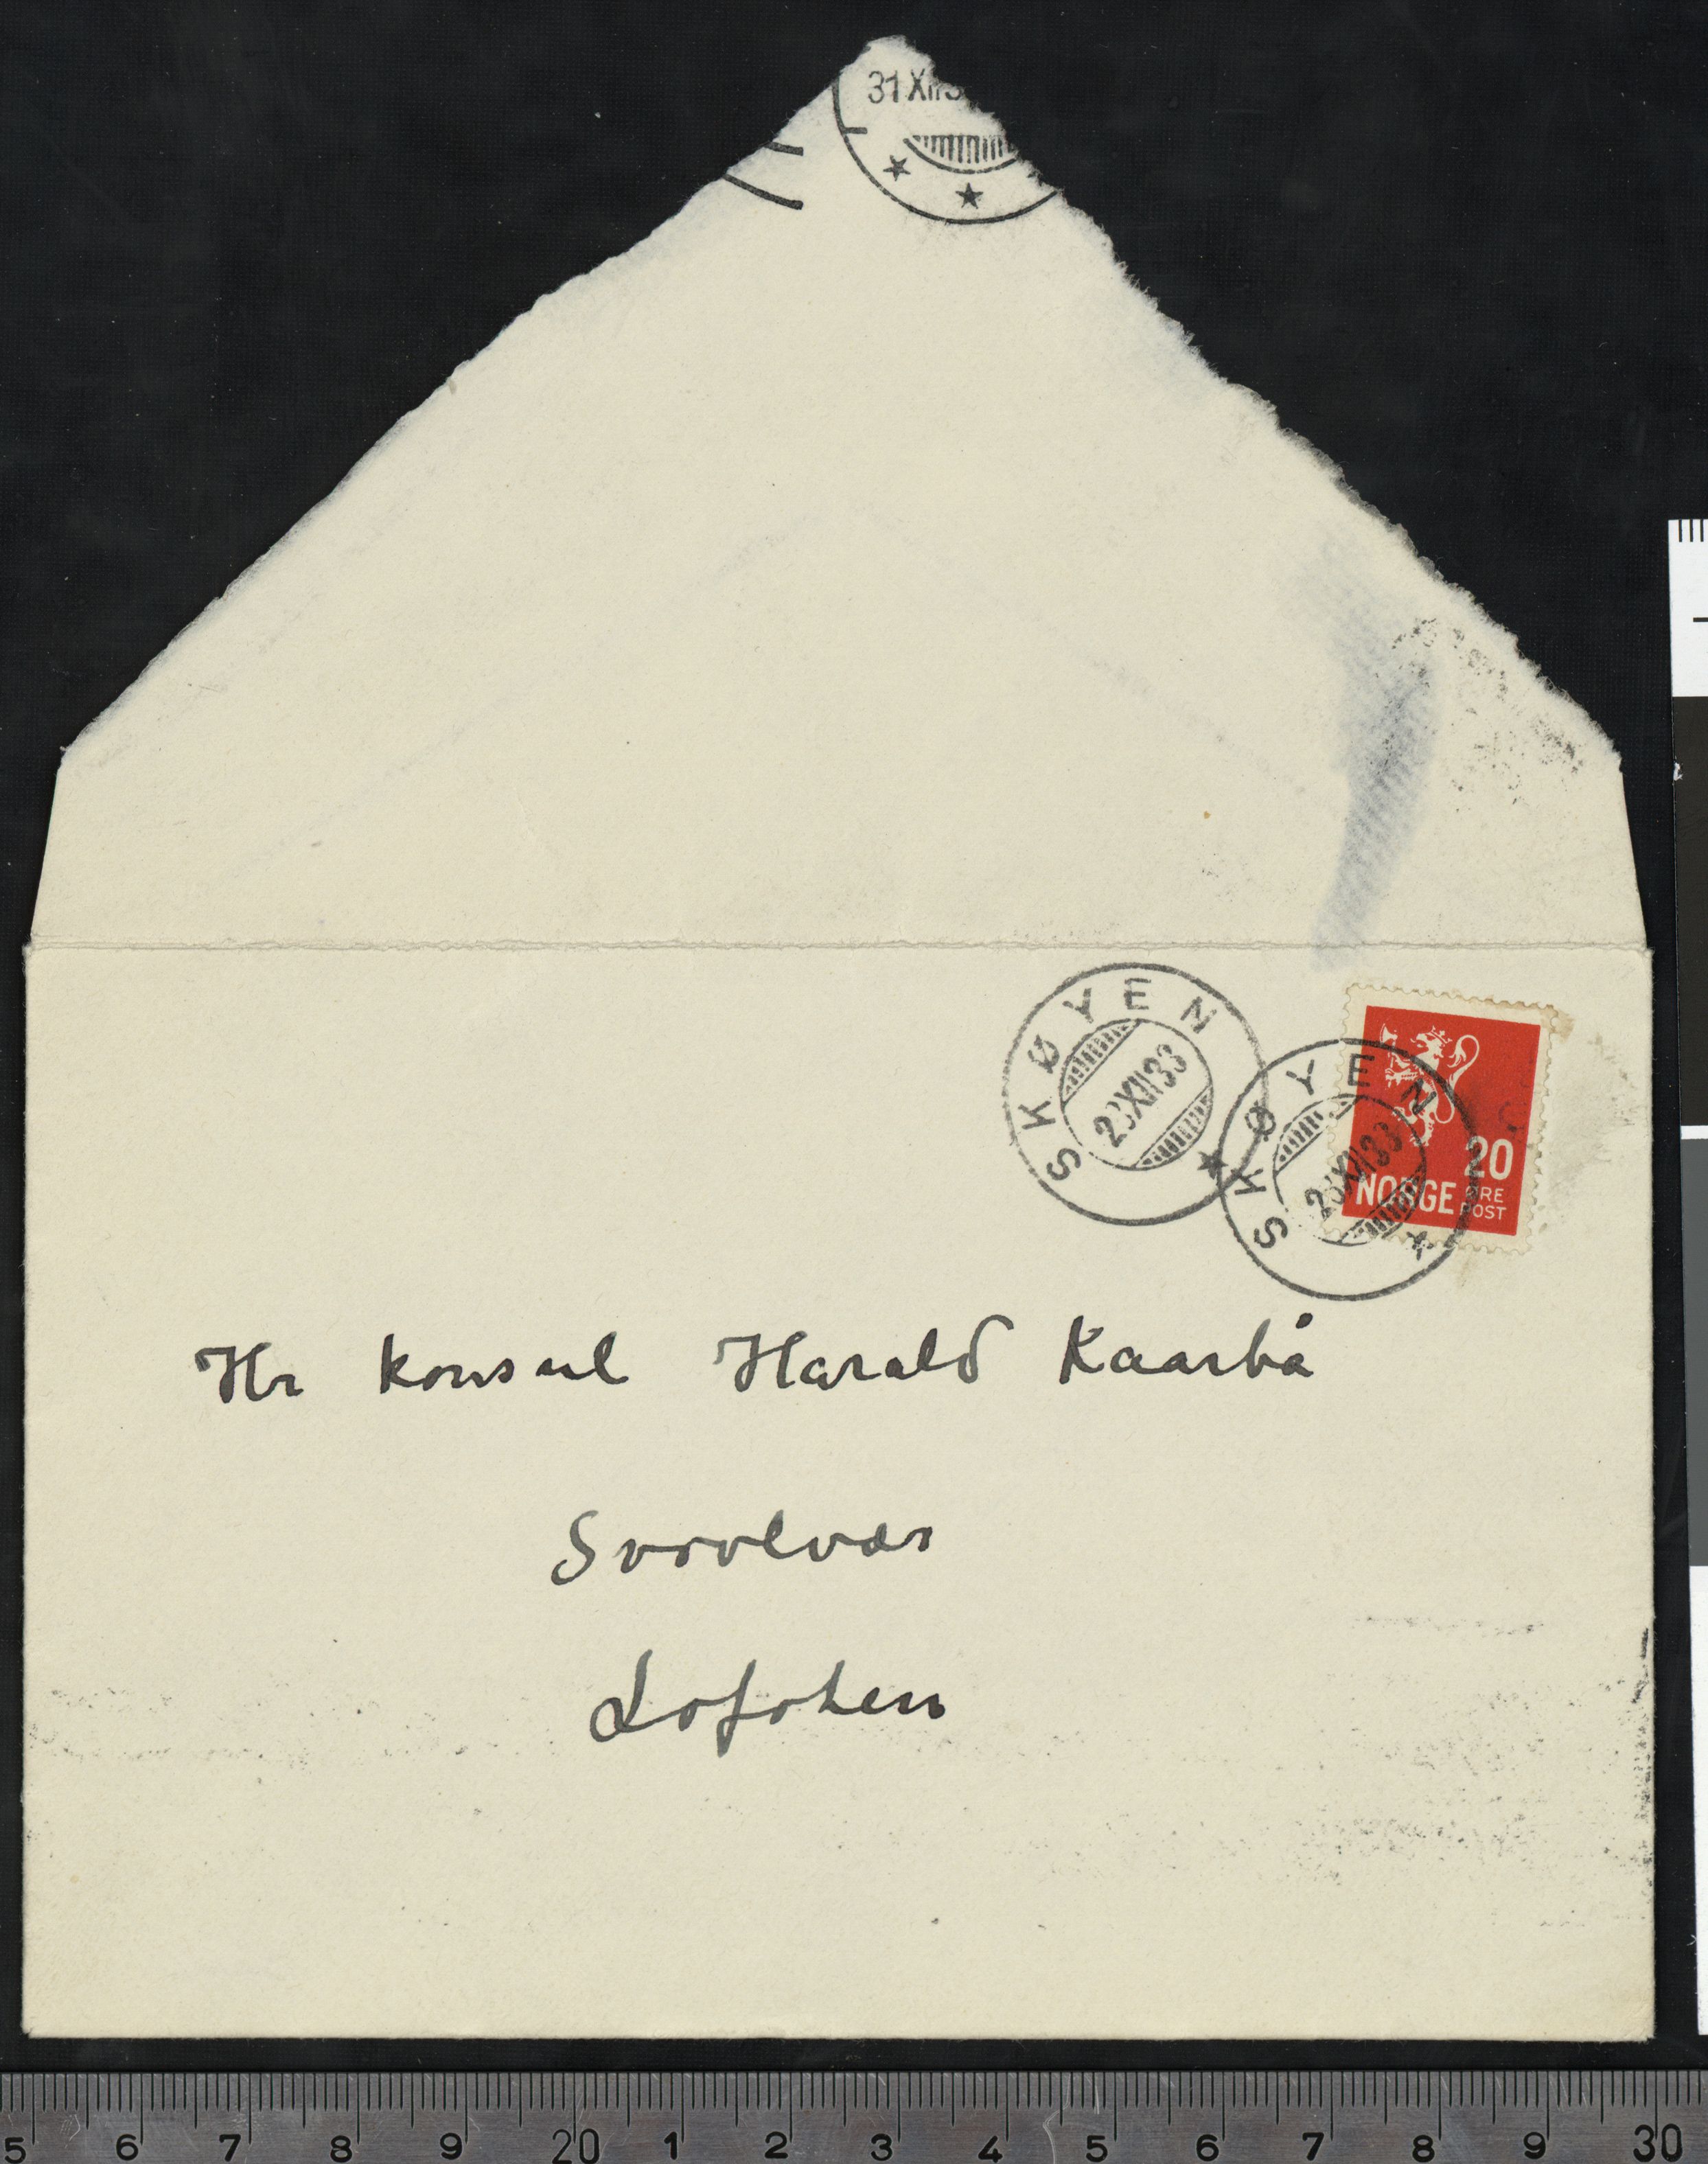 31 XII 3
SKØYEN
2 XII 33
SKØYEN
XII 33
20
NORGE ØRE
POST
Hr konsul Harald Kaarbå
Svolvær
Lofoten
5 6 7 8 9 20 1 2 3 4 5 6 7 8 9 30